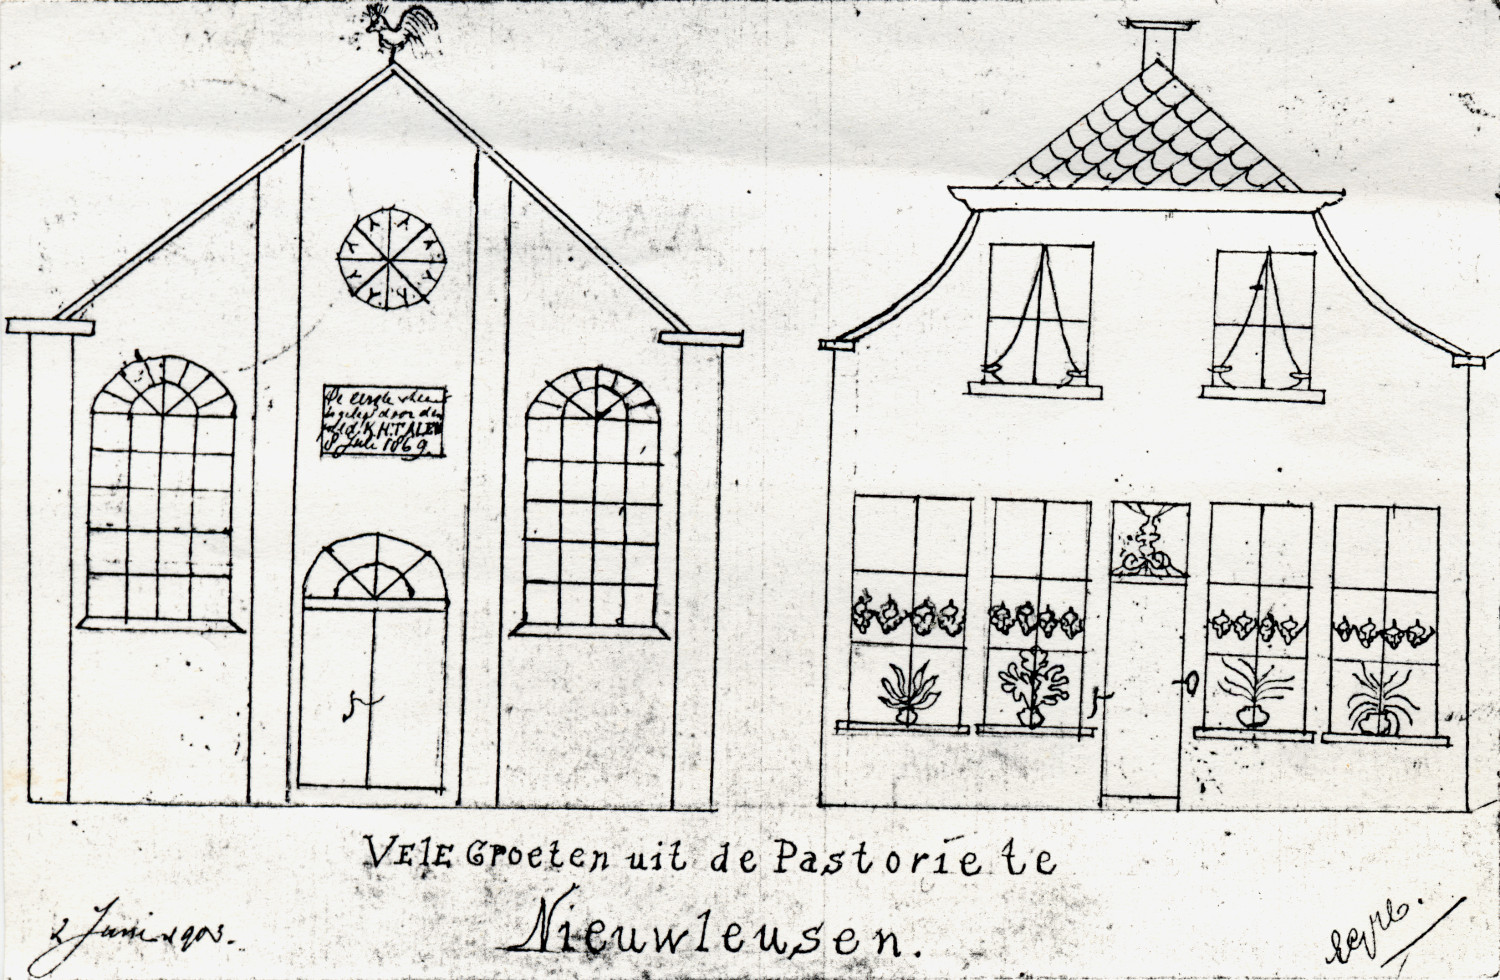 De eerste steen
is gelegd door den
wEld. K.H. TALEN
8 Juli 1869.
VElE Groeten uit de Pastorie te
Nieuwleusen.
2 Juni 1903.